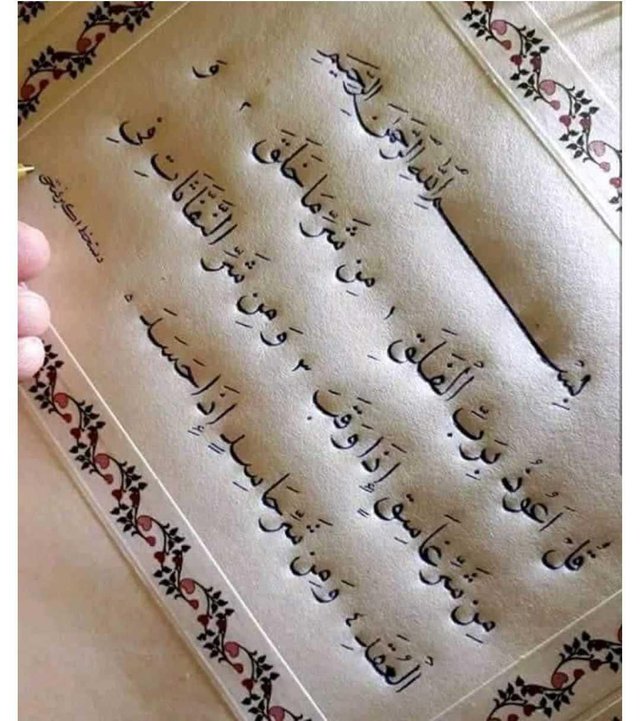 بِسْمِ اللّٰهِ الرَّحْمٰنِ الرَّحِيمِ
قُلْ اَعُوذُ بِرَبِّ الْفَلَقِ ۱ مِن شَرِّ مَا خَلَقَ ۲ وَ
مِن شَرِّ غَاسِقٍ إِذَا وَقَبَ ۳ وَ مِن شَرِّ النَّفَّاثَاتِ فِي
الْعُقَدِ ٤ وَ مِن شَرِّ حَاسِدٍ إِذَا حَسَدَ ٥
دستخط